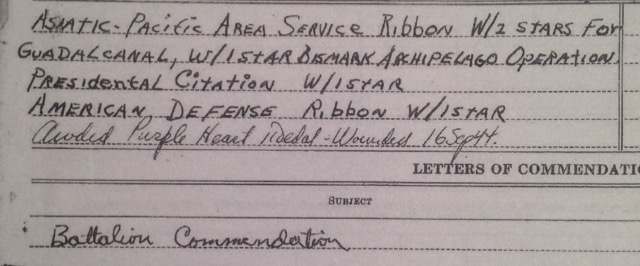 ASIATIC-PACIFIC AREA SERVICE RIBBON W/2 STARS FOR
GUADALCANAL, W/1 STAR BISMARK ARCHIPELAGO OPERATION
PRESIDENTAL CITATION W/1 STAR
AMERICAN DEFENSE RIBBON W/1 STAR
Awarded Purple Heart Medal - Wounded 16Sep44.
LETTERS OF COMMENDATI
SUBJECT
Battalion Commendation